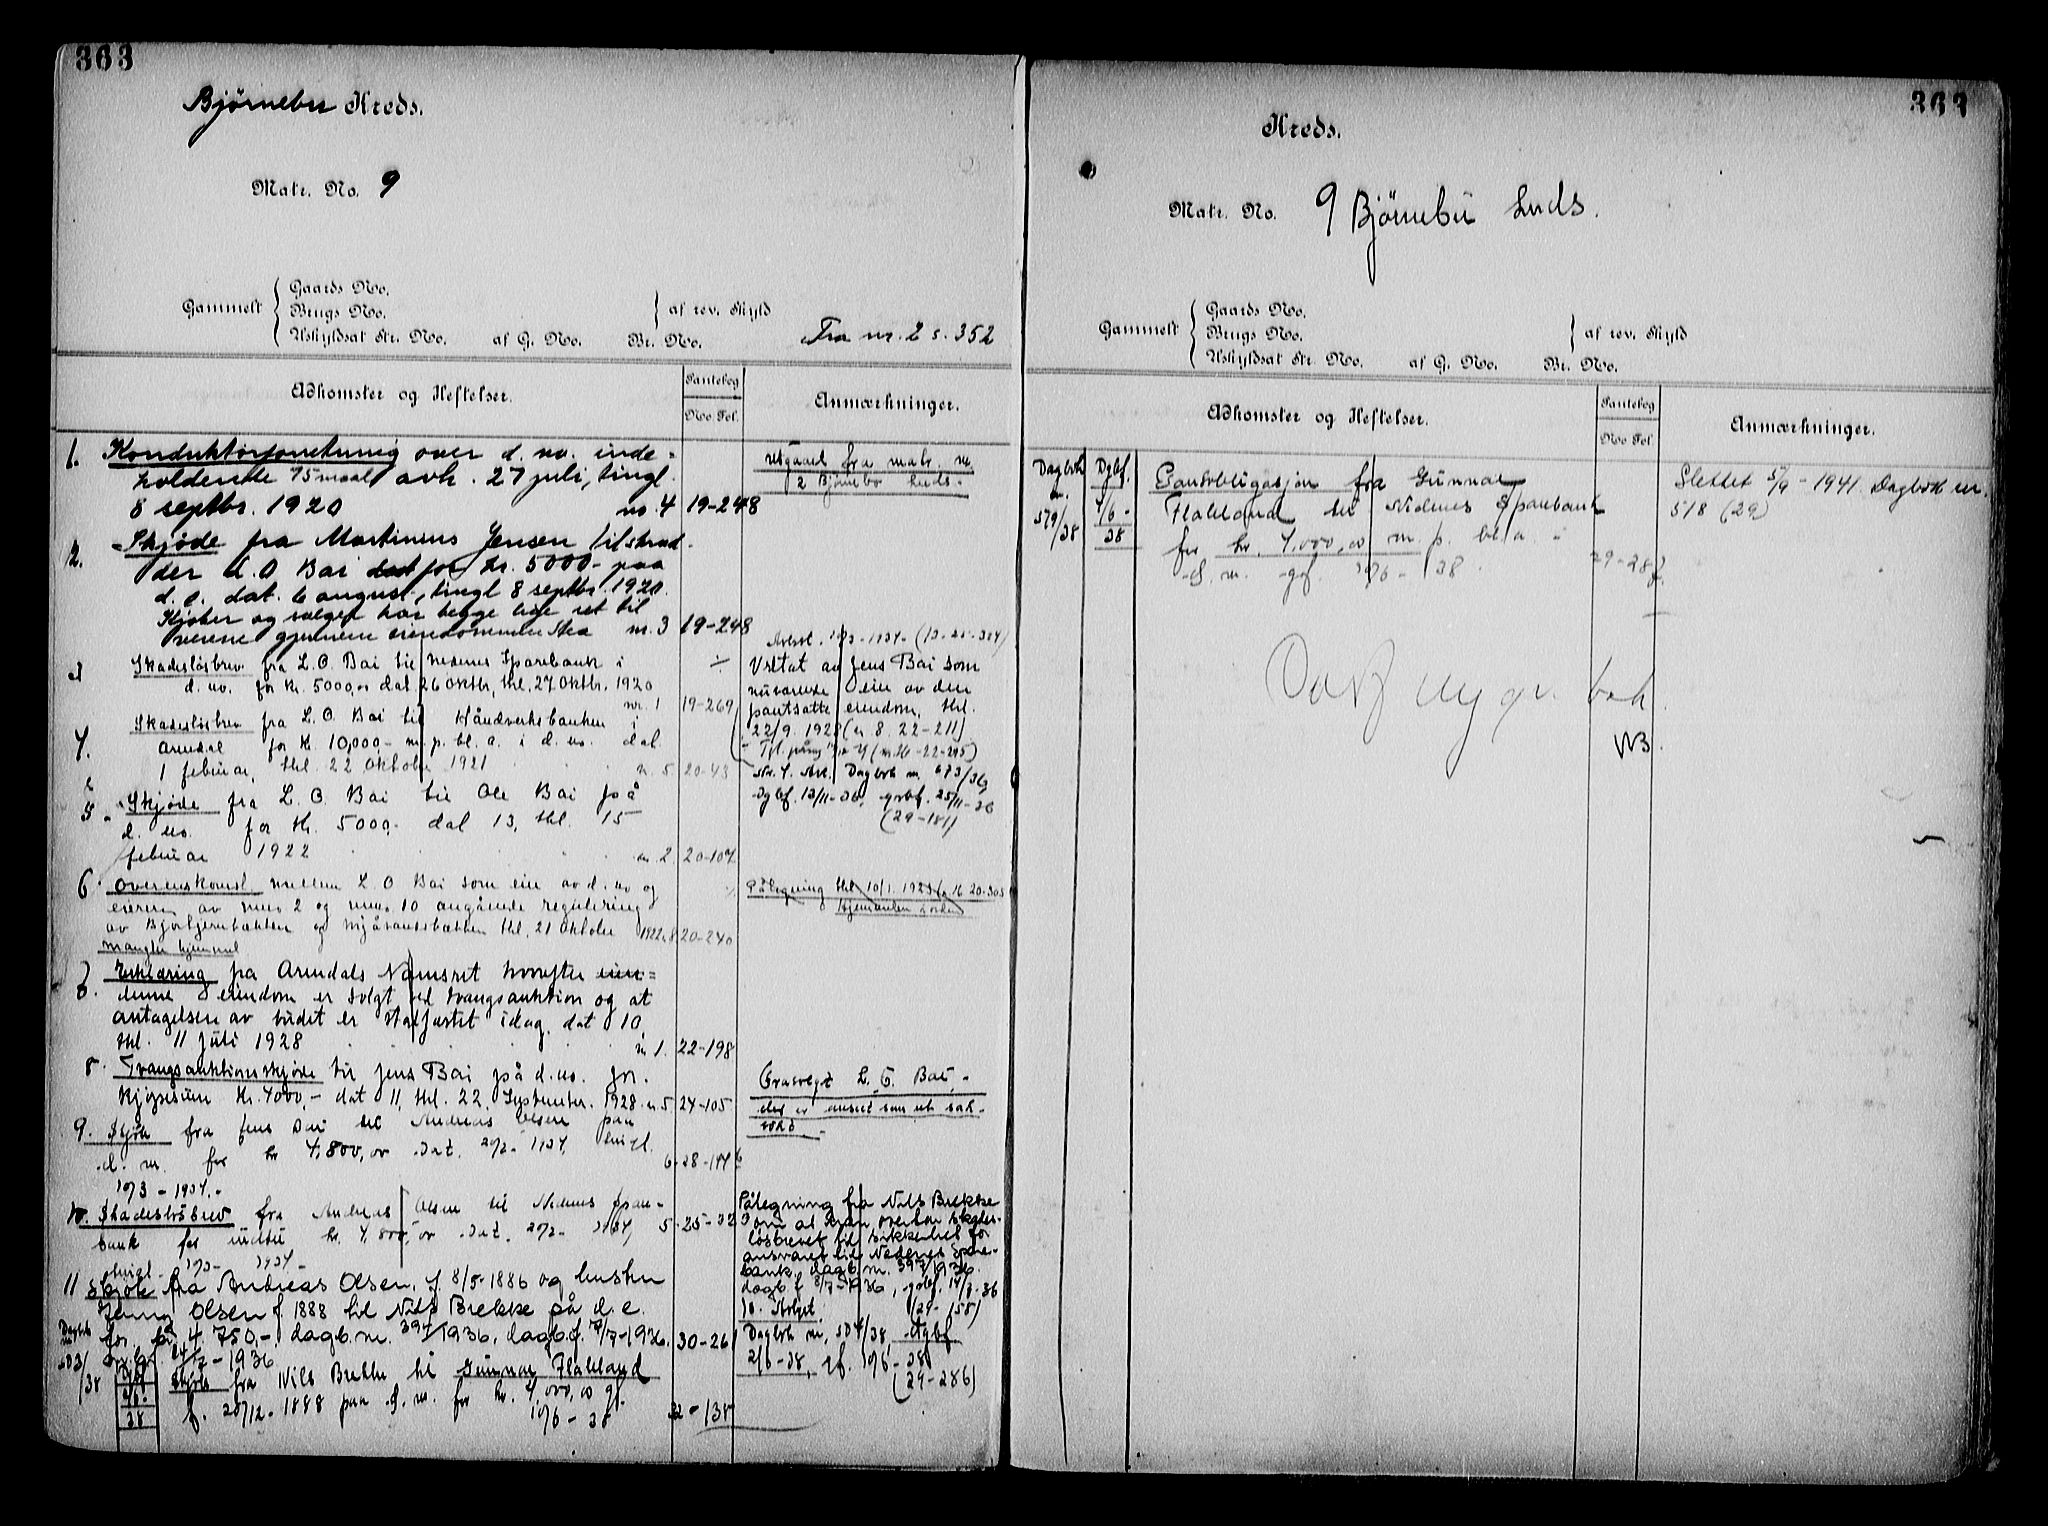 363
Bjørnebu Kreds.
Matr. No. 9
Gammelt
Gaards No.
Brugs No.
Uskyldsat Str. No. af G. No. Br. No.
af rev. Skyld
Fra nr. 2 s. 352
Adkomster og Heftelser.
Pantebog
No Fol.
Anmærkninger.
1. Konduktørforretning over d. no. inde-
holdende 75 maal avh. 27 juli, tingl.
8 septbr. 1920 no. 4 19-248
utgaaet fra matr. nr.
2 Bjørnebo
2. Skjøde fra Martinius Jensen til
der L. O Bai for kr. 5000- paa
d. e. dat. 6 august, tingl 8 septbr. 1920.
Kjøber og sælger har begge lige ret til
veiene gjennem eiendommen nr. 3 19-248
3 Skadesløsbrev fra L. O. Bai til Nedenes Sparebank i
d. no. for kr. 5000,00 dat 26 oktbr, thl. 27 oktbr. 1920
nr. 1 19-269
Vedtat av Jens Bai som
nuværende eier av den
pantsatte eiendom, thl.
22/9. 1928 (nr 8. 22-211)
4. Skadesløsbrev fra L. O. Bai til Håndverksbanken i
Arendal for kr. 10,000- m. p. bl. a. i d. no. dat.
1 februar, thl. 22 oktober 1921 nr. 5 20-43
Nr. 4. Avl. Dagbok nr. 673/36
dgbf. 13/11-36, grbf. 25/11-36
(29-181)
5 Skjøde fra L. O. Bai til Ole Bai på
d. no. for kr. 5000,- dat 13, thl. 15
februar 1922 nr. 2. 20-107
6. Overenskomst mellem L. O Bai som eier av d. no og
eierne av mno 2 og mno. 10 angående regulering
av Bjortjernbækken og Mjåvandsbækken thl. 21 oktober 1922 nr. 8 20-240
mangler hjemmel
Pålegning thl. 10/1. 1923 (nr 16 20-305
7. Erklæring fra Arendals Namsret hvorefter
denne eiendom er solgt ved tvangsauktion og at
antagelsen av budet er stadfæstet idag. dat 10,
thl. 11 juli 1928 nr 1. 22-198
8. Tvangsauktionsskjøde til Jens Bai på d. no. for
kjøpesum kr. 4000,- dat 11, thl. 22. September. 1928. nr 5 24-105
L. O. Bai,
9. Skjøte fra Jens Bai til Andreas Olsen paa
d. nr. for kr 4,800,00 dat. 20/2- 1934, tingl.
10/3 - 1934.- 6-28-144
10. Skadesløsbrev fra Andreas Olsen til Nedenes Spare-
bank for inntil kr. 4,800,00 dat. 20/2- 1934, 5-25-32
tingl. 10/3- 1934.-
Pålegning fra Nils Brekke
om at han overtar skades-
løsbrevet til sikkerhet for
ansvaret til Nedenes Spare-
bank. dagb. nr. 397/1936.
dagb f 8/7-1936, grbf. 14/7-36
10. Avlyst. (29-158)
Dagbok nr. 504/38, dgbf
2/6-38, gf. 10/6-38
(29-286)
11 Skjøte fra Andreas Olsen, f. 8/5-1886 og hustru
Jenny Olsen f. 1888 til Nils Brekke på d. e.
for kr 4.750,-, dagb. nr. 394/1936, dagb. f. 7/7-1936. 30-261
14/7-1936.
Skjøte fra Nils Brekke til Gunnar Flakeland
f. 20/12-1888 paa d. nr. for kr. 4,000,00 gf.
10/6-38 32-138
363
Kreds.
Matr. No. 9 Bjørnebu
Gammelt
Gaards No.
Brugs No.
Uskyldsat Str. No. af G. No. Br. No.
af rev. Skyld
Adkomster og Heftelser.
Pantebog
No Fol.
Anmærkninger.
Dagbok nr. 579/38
Dgbf. 1/6-38
Pantobligasjon fra Gunnar
Flakeland til Nedenes Sparebank
for kr. 4,000,00 m. p. bl. a. i
d. nr. gf. 10/6-38. 29-287
Slettet 5/9-1941 Dagbok nr.
518 (29)
Ny gr. bok
NB.